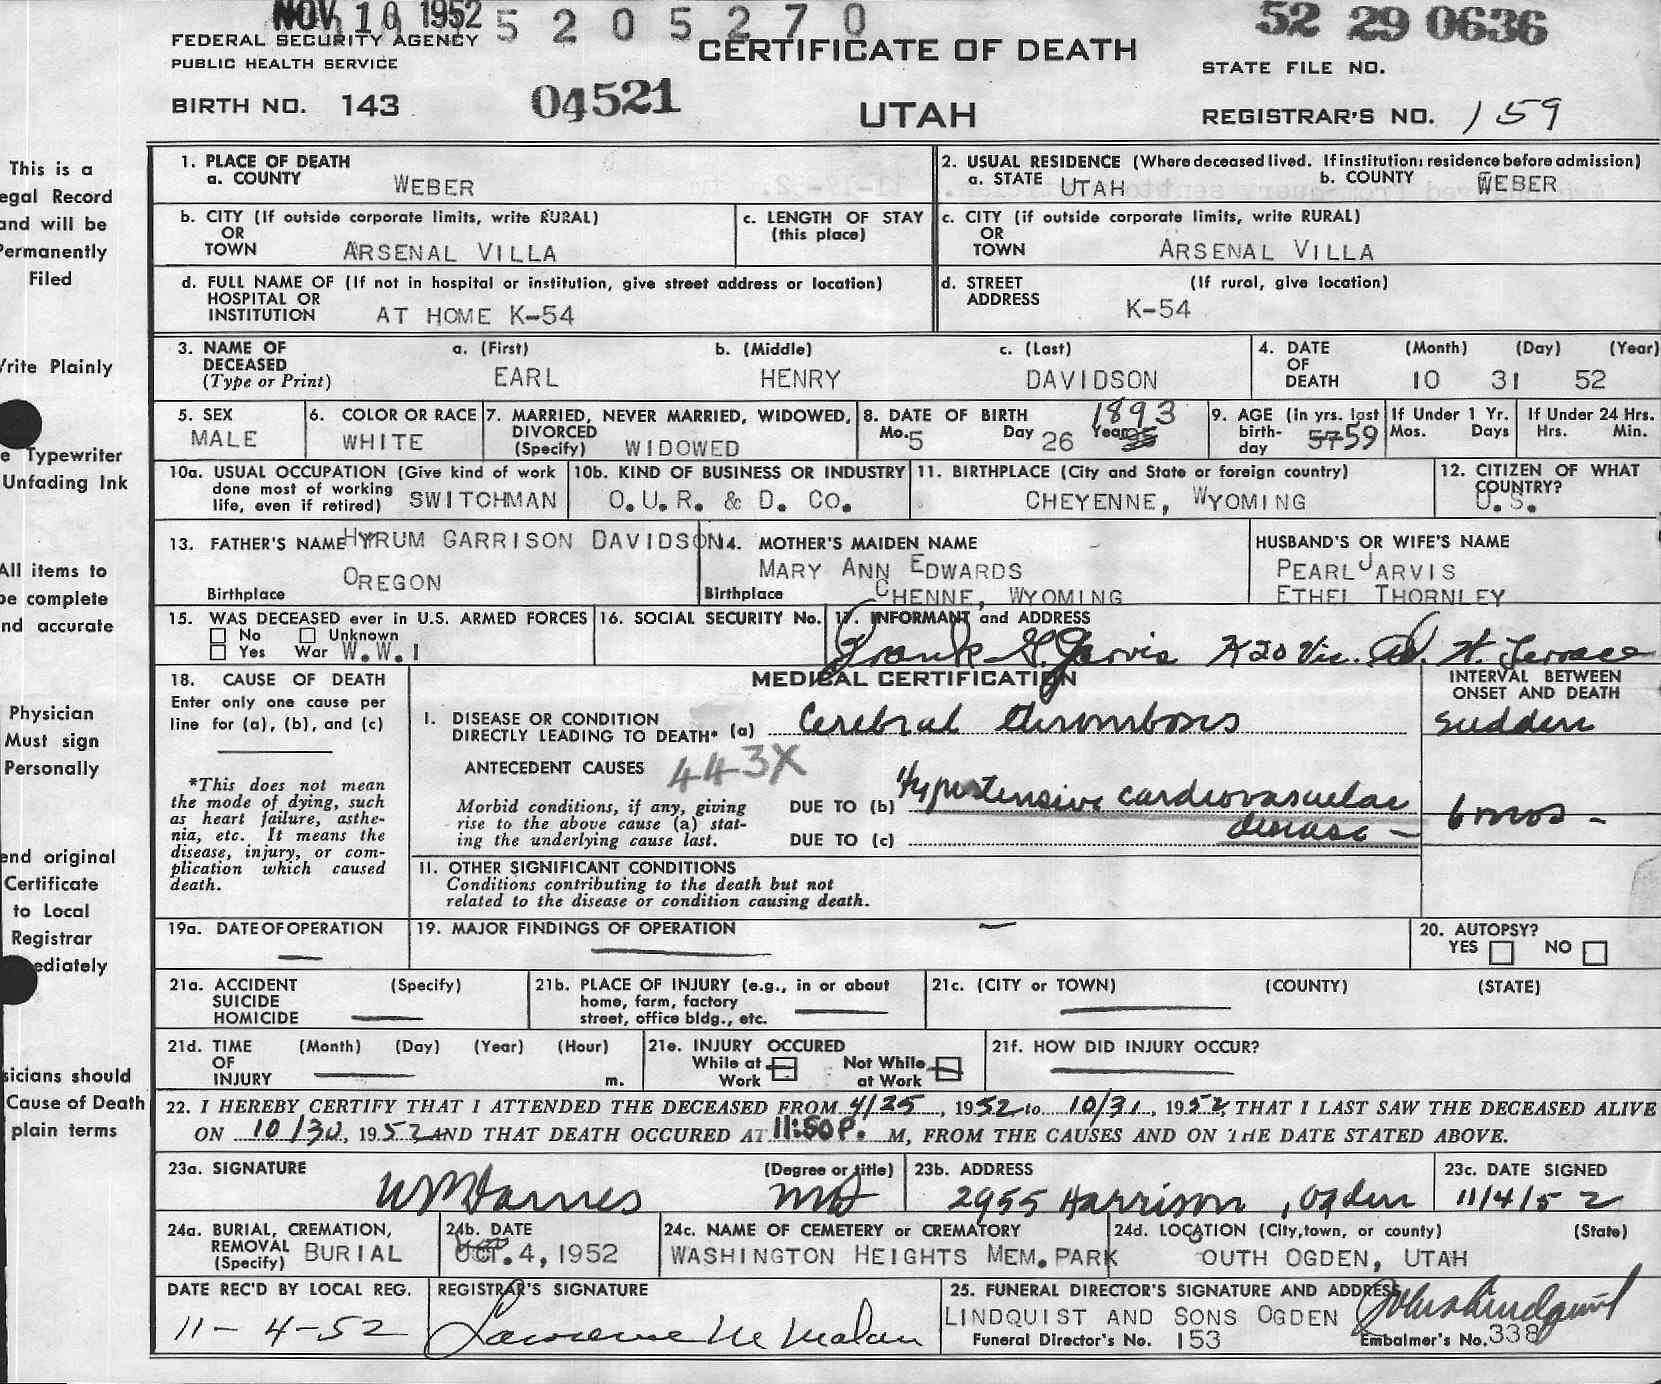 NOV 10 1952 5 2 0 5 2 7 0 52 29 0636
FEDERAL SECURITY AGENCY
PUBLIC HEALTH SERVICE
CERTIFICATE OF DEATH
STATE FILE NO.
BIRTH NO. 143 04521 UTAH REGISTRAR'S NO. 159
This is a
egal Record
and will be
Permanently
Filed
Write Plainly
e Typewriter
Unfading Ink
All items to
be complete
nd accurate
Physician
Must sign
Personally
end original
Certificate
to Local
Registrar
ediately
sicians should
Cause of Death
plain terms
1. PLACE OF DEATH
a. COUNTY WEBER
2. USUAL RESIDENCE (Where deceased lived. If institution: residence before admission)
a. STATE UTAH b. COUNTY WEBER
b. CITY (If outside corporate limits, write RURAL)
OR
TOWN ARSENAL VILLA
c. LENGTH OF STAY
(this place)
c. CITY (if outside corporate limits, write RURAL)
OR
TOWN ARSENAL VILLA
d. FULL NAME OF (If not in hospital or institution, give street address or location)
HOSPITAL OR
INSTITUTION AT HOME K-54
d. STREET (If rural, give location)
ADDRESS K-54
3. NAME OF a. (First) b. (Middle) c. (Last)
DECEASED
(Type or Print) EARL HENRY DAVIDSON
4. DATE (Month) (Day) (Year)
OF
DEATH 10 31 52
5. SEX
MALE
6. COLOR OR RACE
WHITE
7. MARRIED, NEVER MARRIED, WIDOWED,
DIVORCED
(Specify) WIDOWED
8. DATE OF BIRTH 1893
Mo. 5 Day 26 Year 95
9. AGE (in yrs. last
birth-
day 57 59
If Under 1 Yr.
Mos. Days
If Under 24 Hrs.
Hrs. Min.
10a. USUAL OCCUPATION (Give kind of work
done most of working
life, even if retired) SWITCHMAN
10b. KIND OF BUSINESS OR INDUSTRY
O.U.R. & D. CO.
11. BIRTHPLACE (City and State or foreign country)
CHEYENNE, WYOMING
12. CITIZEN OF WHAT
COUNTRY?
U.S.
13. FATHER'S NAME HYRUM GARRISON DAVIDSON
OREGON
Birthplace
14. MOTHER'S MAIDEN NAME
MARY ANN EDWARDS
Birthplace CHENNE, WYOMING
HUSBAND'S OR WIFE'S NAME
PEARL JARVIS
ETHEL THORNLEY
15. WAS DECEASED ever in U.S. ARMED FORCES
No Unknown
Yes War W.W.I
16. SOCIAL SECURITY No.
17. INFORMANT and ADDRESS
Frank G. Jarvis K20 Vic. Rd. W. Terrace
18. CAUSE OF DEATH
Enter only one cause per
line for (a), (b), and (c)
*This does not mean
the mode of dying, such
as heart failure, asthe-
nia, etc. It means the
disease, injury, or com-
plication which caused
death.
MEDICAL CERTIFICATION
INTERVAL BETWEEN
ONSET AND DEATH
I. DISEASE OR CONDITION
DIRECTLY LEADING TO DEATH* (a) Cerebral thrombosis sudden
ANTECEDENT CAUSES 443X
Morbid conditions, if any, giving
rise to the above cause (a) stat-
ing the underlying cause last.
DUE TO (b) Hypertensive cardiovascular disease - 6 mos -
DUE TO (c)
II. OTHER SIGNIFICANT CONDITIONS
Conditions contributing to the death but not
related to the disease or condition causing death.
19a. DATE OF OPERATION
19. MAJOR FINDINGS OF OPERATION
20. AUTOPSY?
YES NO
21a. ACCIDENT (Specify)
SUICIDE
HOMICIDE
21b. PLACE OF INJURY (e.g., in or about
home, farm, factory
street, office bldg., etc.
21c. (CITY or TOWN) (COUNTY) (STATE)
21d. TIME (Month) (Day) (Year) (Hour)
OF
INJURY m.
21e. INJURY OCCURED
While at Work
Not While at Work
21f. HOW DID INJURY OCCUR?
22. I HEREBY CERTIFY THAT I ATTENDED THE DECEASED FROM 4/25, 1952 to 10/31, 1952, THAT I LAST SAW THE DECEASED ALIVE
ON 10/30, 1952 AND THAT DEATH OCCURED AT 11:50 P. M, FROM THE CAUSES AND ON THE DATE STATED ABOVE.
23a. SIGNATURE (Degree or title)
MD
23b. ADDRESS
2955 Harrison, Ogden
23c. DATE SIGNED
11/4/52
24a. BURIAL, CREMATION,
REMOVAL
(Specify) BURIAL
24b. DATE
OCT. 4, 1952
24c. NAME OF CEMETERY or CREMATORY
WASHINGTON HEIGHTS MEM. PARK
24d. LOCATION (City, town, or county) (State)
SOUTH OGDEN, UTAH
DATE REC'D BY LOCAL REG.
11-4-52
REGISTRAR'S SIGNATURE
Lawrence M Malan
25. FUNERAL DIRECTOR'S SIGNATURE AND ADDRESS
LINDQUIST AND SONS OGDEN John A Lindquist
Funeral Director's No. 153 Embalmer's No. 338